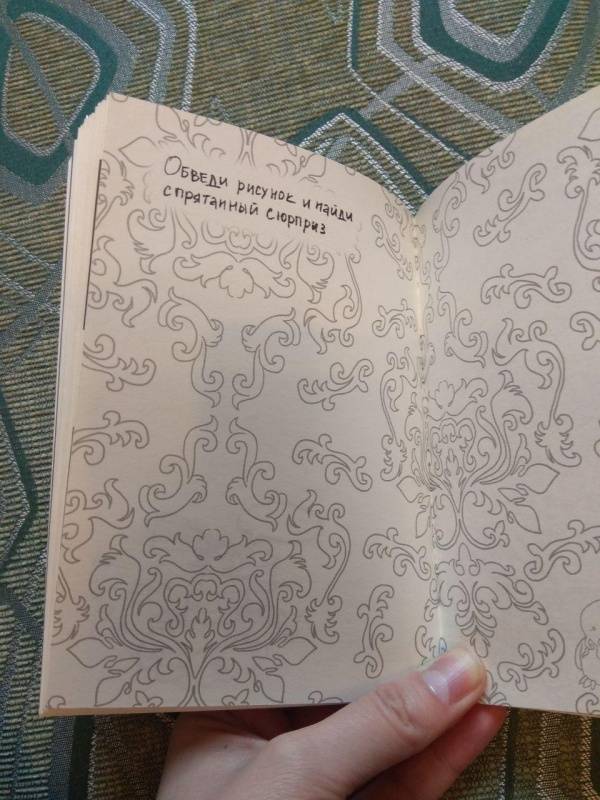 Обведи рисунок и найди
спрятанный сюрприз